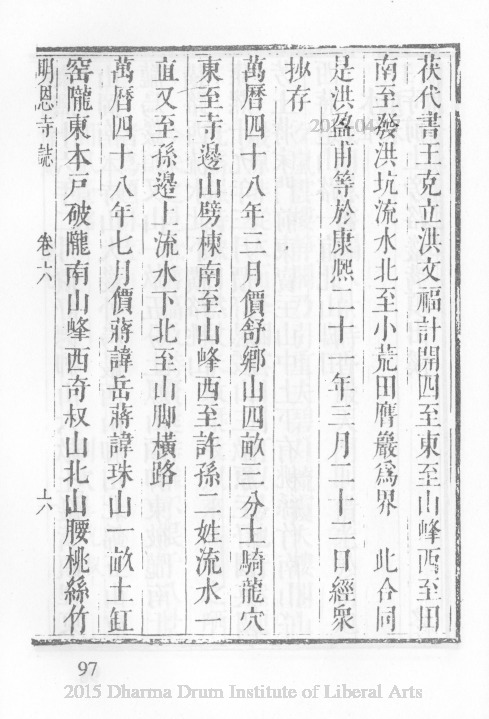 茯代書王克立洪文福計開四至東至山峰西至田
南至發洪坑流水北至小荒田膺巖爲界　此合同
是洪盈甫等於康熙二十一年三月二十二日經衆
抄存
萬曆四十八年三月價舒鄉山四畝三分土騎龍穴
東至寺邊山劈棟南至山峰西至許孫二姓流水一
直又至孫邊上流水下北至山脚橫路
萬曆四十八年七月價蔣諱岳蔣諱珠山一畝土缸
窑隴東本戶破隴南山峰西奇叔山北山腰桃絲竹
明恩寺誌　卷六　六
97
2015 Dharma Drum Institute of Liberal Arts